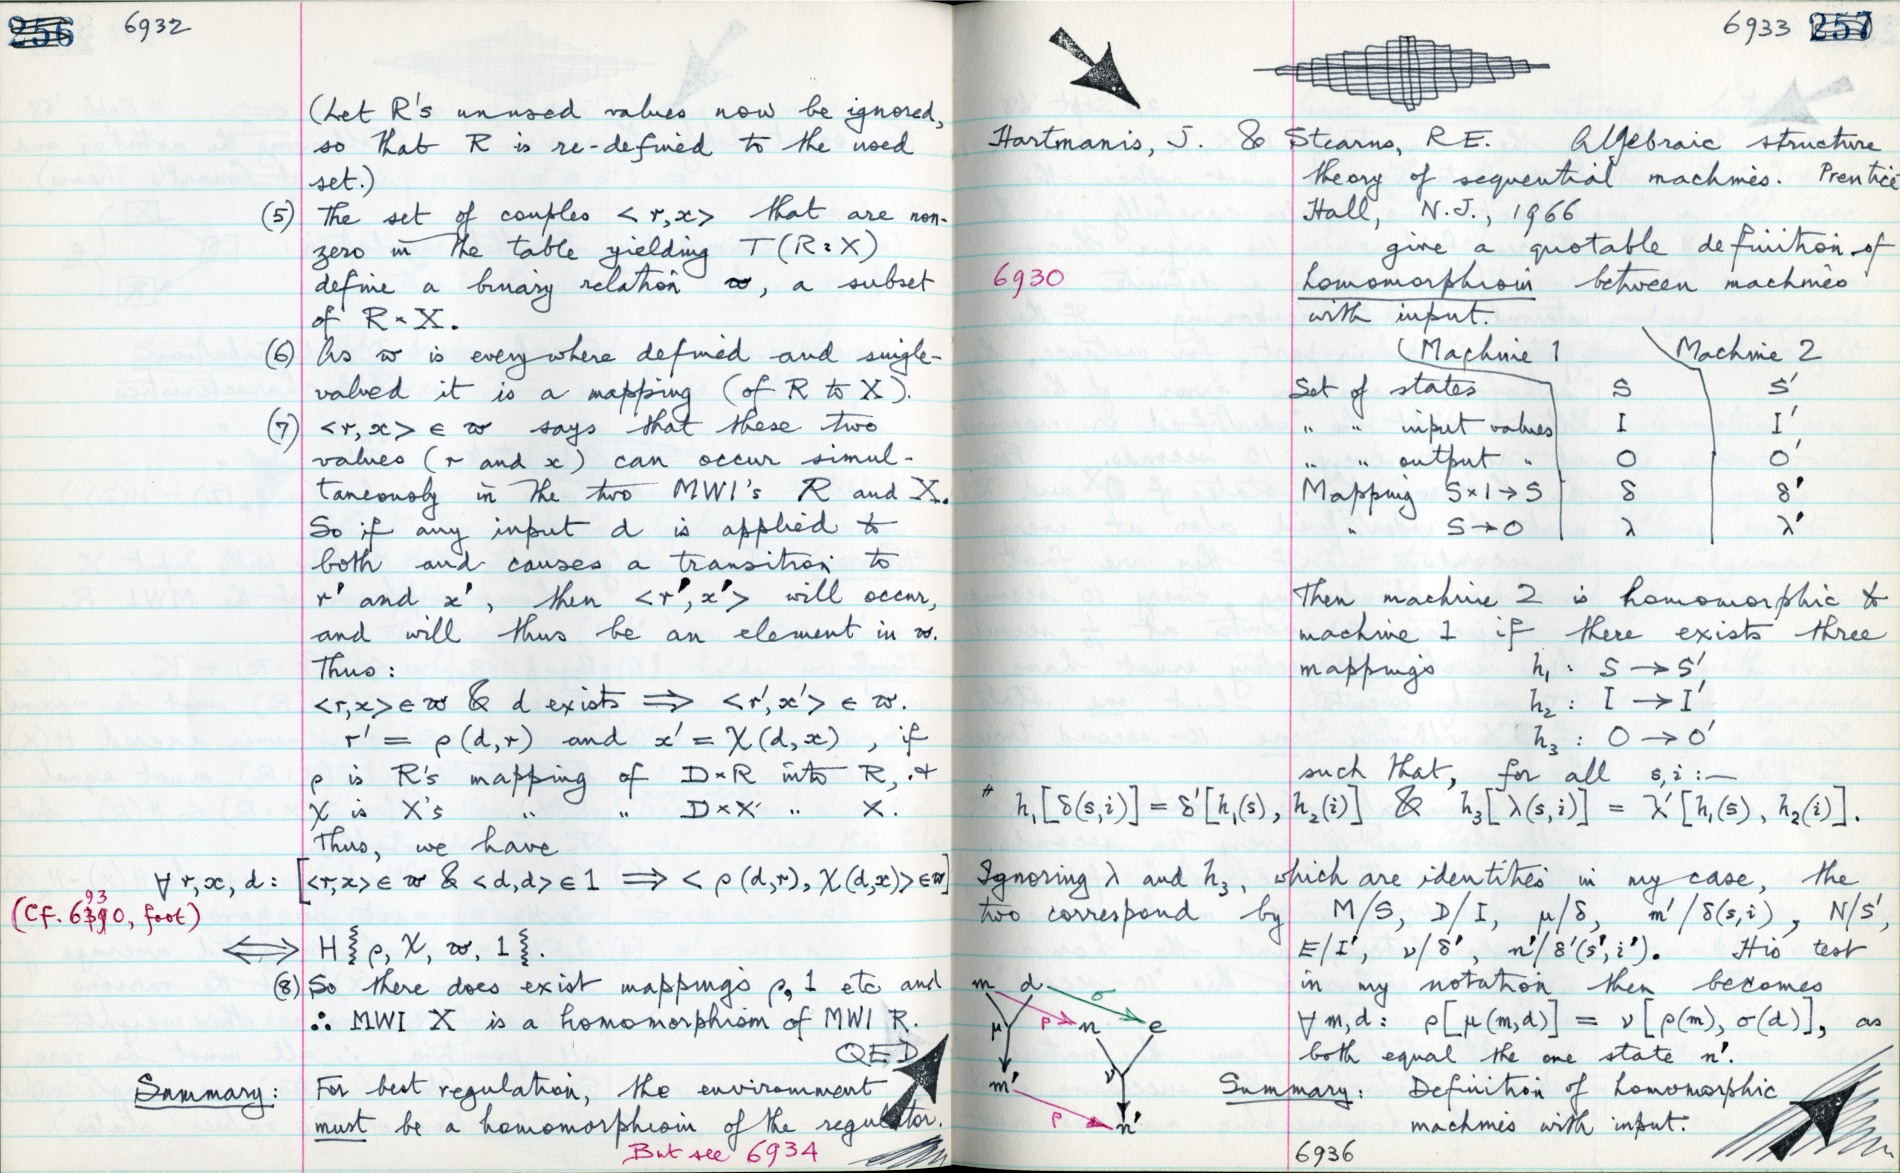 256 6932
(Let R's unused values now be ignored,
so that R is re-defined to the used
set.)
(5) The set of couples <r,x> that are non-
zero in the table yielding T(R:X)
define a binary relation ϖ, a subset
of R×X.
(6) As ϖ is everywhere defined and single-
valued it is a mapping (of R to X).
(7) <r,x> ∈ ϖ says that these two
values (r and x) can occur simul-
taneously in the two MWI's R and X.
So if any input d is applied to
both and causes a transition to
r' and x', then <r',x'> will occur,
and will thus be an element in ϖ.
Thus:
<r,x> ∈ ϖ & d exists ⟹ <r',x'> ∈ ϖ.
r' = ρ(d,r) and x' = χ(d,x), if
ρ is R's mapping of D×R into R, &
χ is X's " " D×X " X.
Thus, we have
∀ r,x,d: [<r,x> ∈ ϖ & <d,d> ∈ 1 ⟹ <ρ(d,r), χ(d,x)> ∈ ϖ]
93
(Cf. 6390, foot)
⟺ H{ρ, χ, ϖ, 1}.
(8) So there does exist mappings ρ, 1 etc and
∴ MWI X is a homomorphism of MWI R.
QED
Summary: For best regulation, the environment
must be a homomorphism of the regulator.
But see 6934
6933 257
Hartmanis, J. & Stearns, R.E. Algebraic structure
theory of sequential machines. Prentice
Hall, N.J., 1966
give a quotable definition of
6930 homomorphism between machines
with input.
Machine 1 Machine 2
Set of states S S'
" " input values I I'
" " output " O O'
Mapping S×I→S δ δ'
" S→O λ λ'
Then machine 2 is homomorphic to
machine 1 if there exists three
mappings h₁ : S → S'
h₂ : I → I'
h₃ : O → O'
such that, for all s,i :—
h₁[δ(s,i)] = δ'[h₁(s), h₂(i)] & h₃[λ(s,i)] = λ'[h₁(s), h₂(i)].
Ignoring λ and h₃, which are identities in my case, the
two correspond by M/S, D/I, μ/δ, m'/δ(s,i), N/S',
E/I', ν/δ', n'/δ'(s',i'). His test
in my notation then becomes
∀m,d: ρ[μ(m,d)] = ν[ρ(m), σ(d)], as
both equal the one state n'.
m d σ
μ ρ n e
m' ν
ρ n'
Summary: Definition of homomorphic
machines with input.
6936